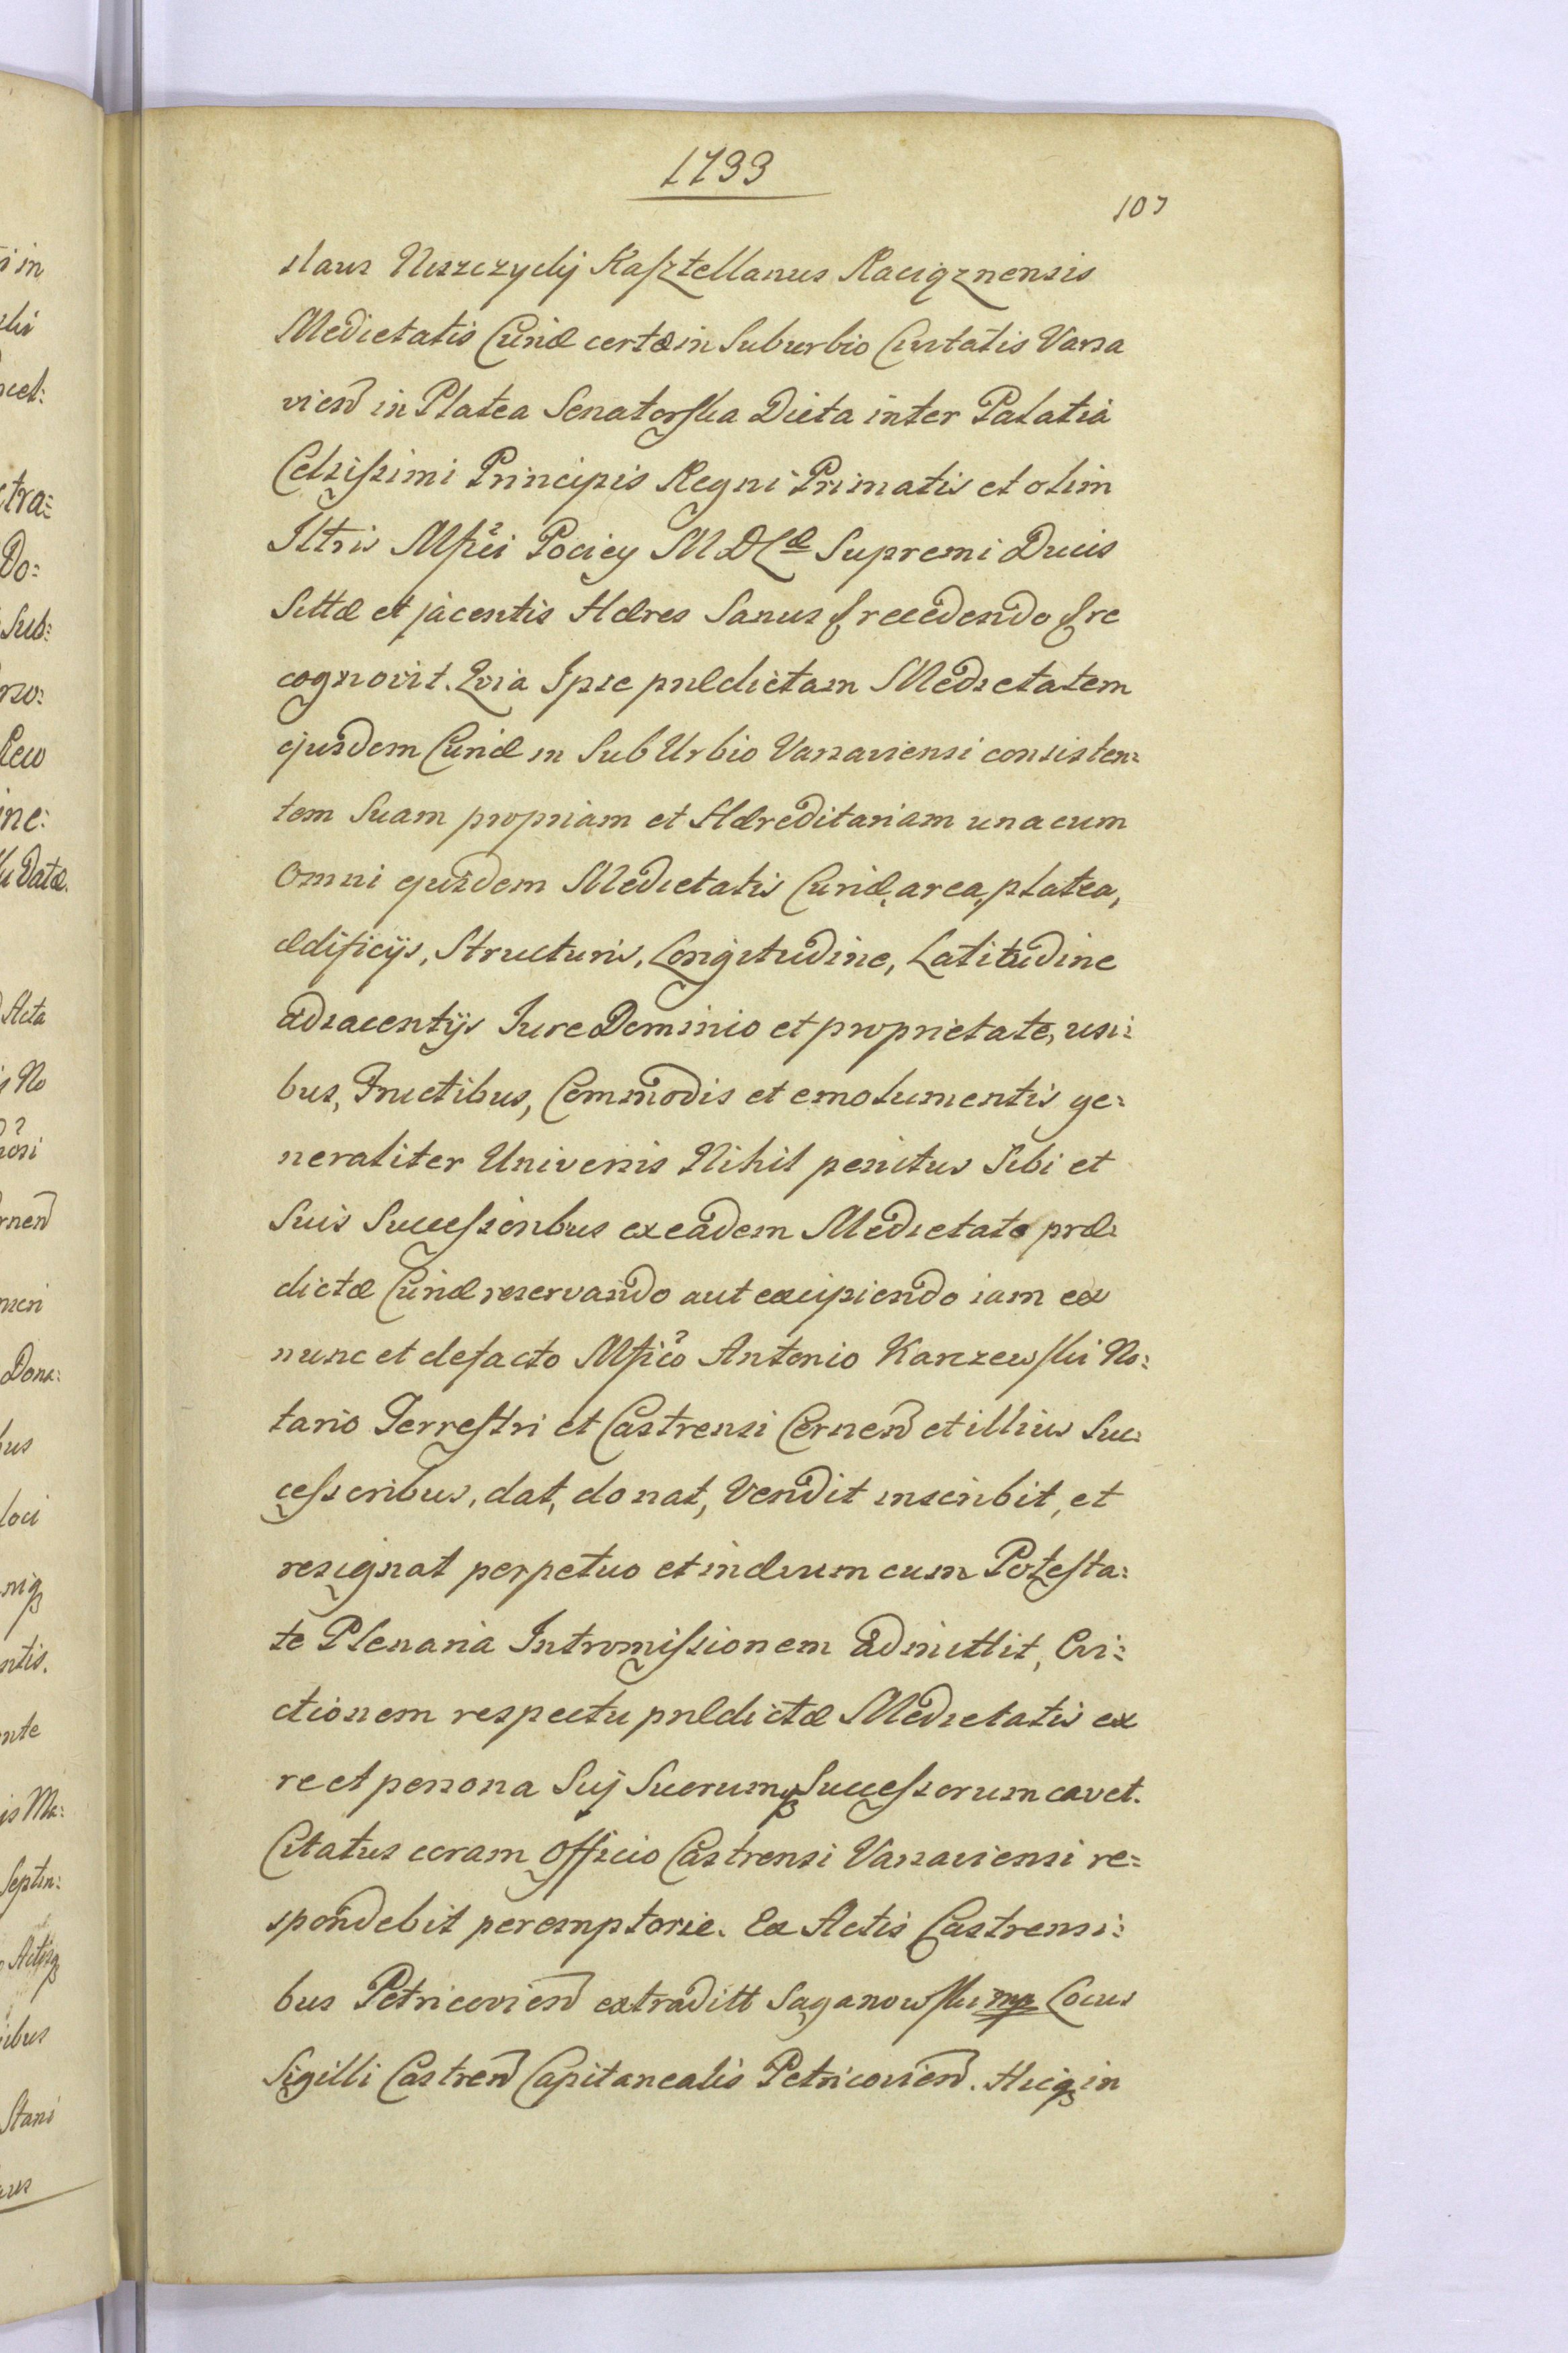 1733
107
slaus Uszczycÿ Kasztellanus Raciąznensis
Medietatis Curiæ certæ in Suburbio Civitatis Varsa
vien in Platea Senatorska Dicta inter Palatia
Celsissimi Principis Regni Primatis et olim
Iltris Mfici Pociey M D Læ Supremi Ducis
Sittæ et jacentis Hæres Sanus & recedendo & re
cognovit. Qvia Ipse prædictam Medietatem
ejusdem Curiæ in SubUrbio Varsaviensi consisten:
tem Suam propriam et Hæreditariam unacum
Omni ejusdem Medietatis Curiæ, area, platea,
ædificijs, Structuris, Longitudine, Latitudine
adiacentÿs Iure Dominio et proprietate, usi:
bus, Fructibus, Commodis et emolumentis ge:
neraliter Universis Nihil penitus Sibi et
Suis Successoribus ex eadem Medietate præ:
dictæ Curiæ reservando aut excipiendo iam ex
nunc et defacto Mfico Antonio Karczewski No:
tario Terrestri et Castrensi Cernen et illius Suc:
cessoribus, dat, donat, Vendit inscribit, et
resignat perpetuo et in ævum cum Potesta:
te Plenaria Intromissionem admittit, Evi:
ctionem respectu prædictæ Medietatis ex
re et persona Suj Suorumq Successorum cavet.
Citatus coram Officio Castrensi Varsaviensi re:
spondebit peremptorie. Ex Actis Castrensi:
bus Petricovien extraditt Saganowski mp Locus
Sigilli Castren Capitanealis Petricovien. Hicq in